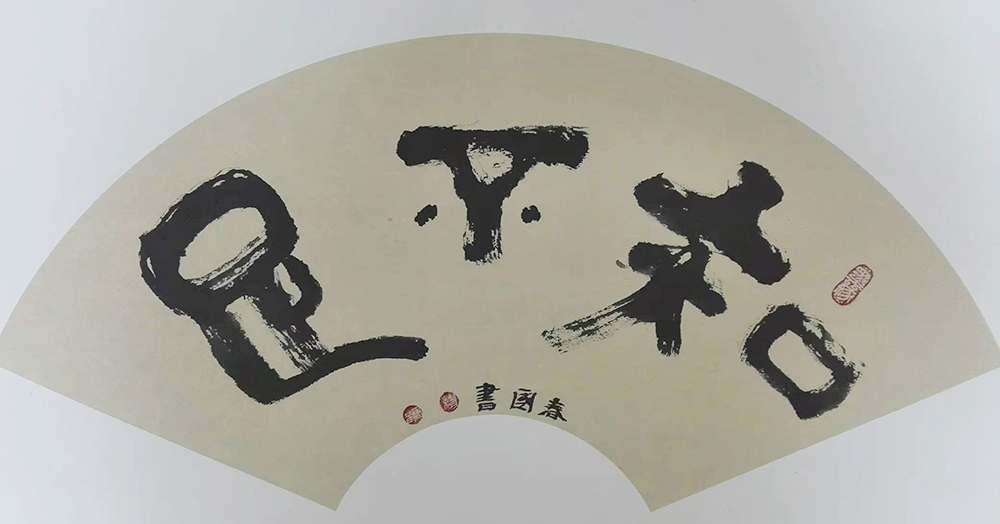 知不足
春国書